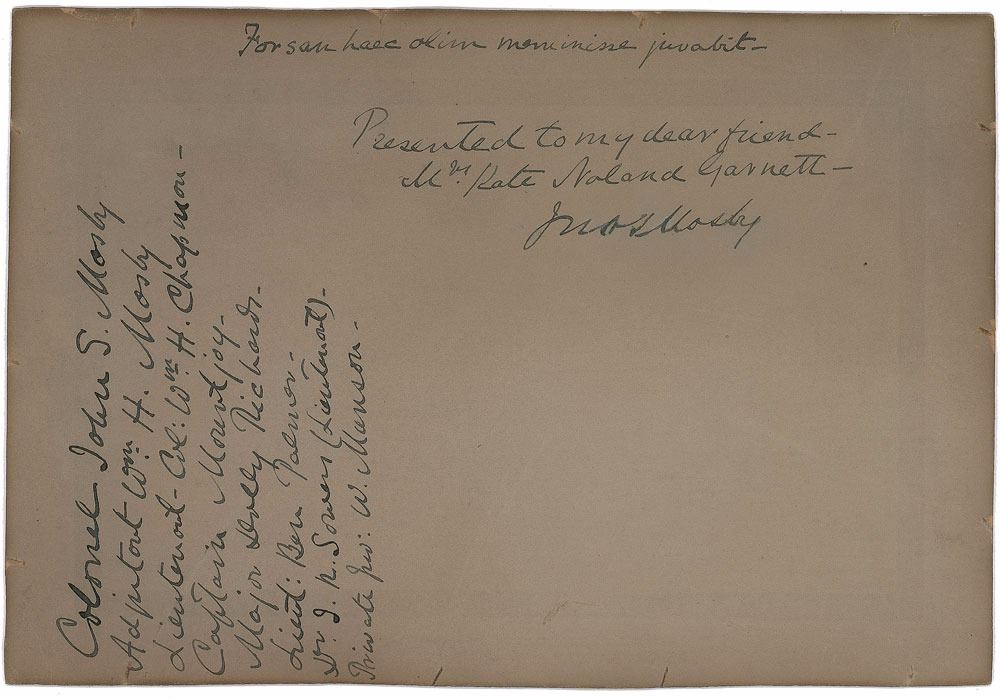 Forsan haec olim meminisse juvabit—
Presented to my dear friend—
Mrs Kate Noland Garnett—
Jno S Mosby
Colonel John S. Mosby
Adjutant Wm H. Mosby
Lieutenant-Col: Wm H. Chapman—
Captain Mountjoy—
Major Dolly Richards—
Lieut: Ben Palmer—
Dr. J. R. Sowers (Lieutenant)—
Private W. Munson—